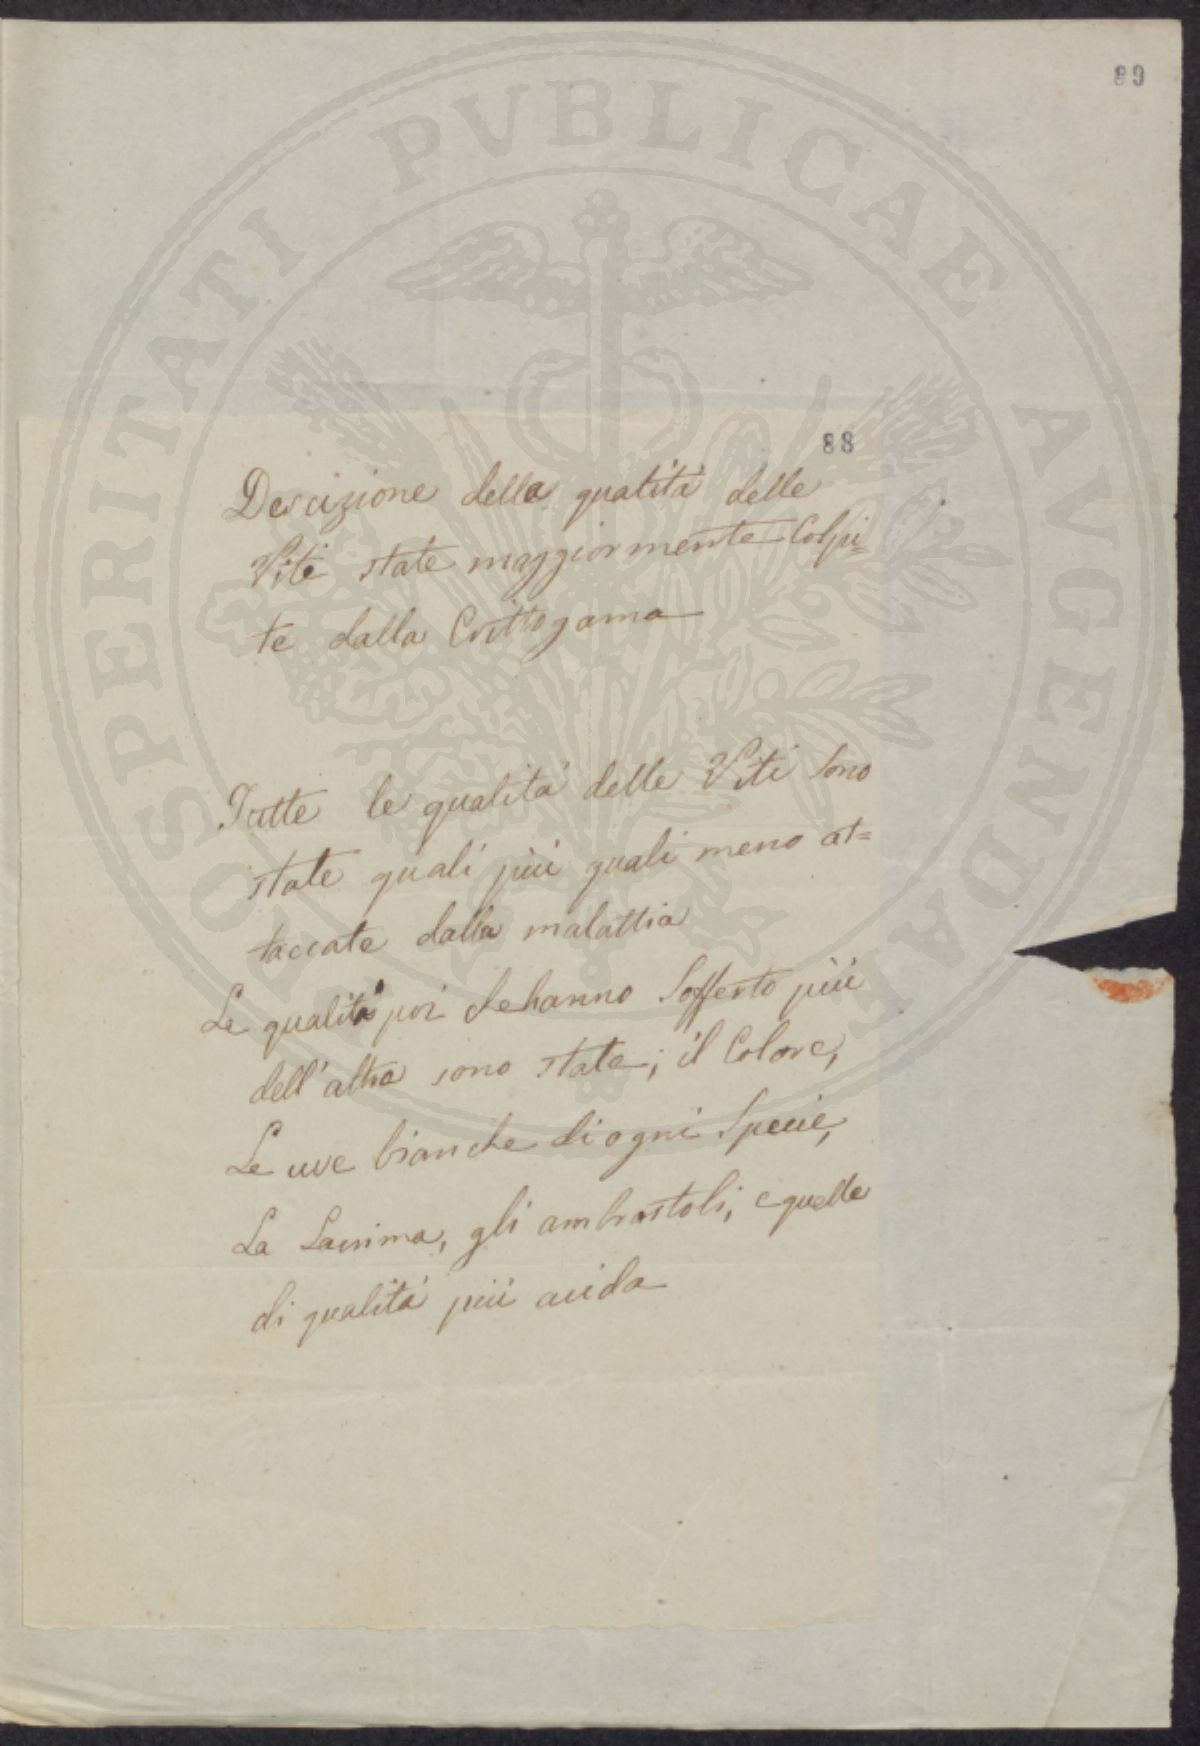 89
88
Descizione della qualità delle
Viti state maggiormente Colpi=
te dalla Crittogama
Tutte le qualità delle Viti sono
state quali più quali meno at=
taccate dalla malattia
Le qualità poi che hanno Sofferto più
dell'altra sono state; il Colore,
Le uve bianche di ogni Specie,
La Lacrima, gli ambrostoli, e quelle
di qualità più acida
PROSPERITATI PVBLICAE AVGENDAE